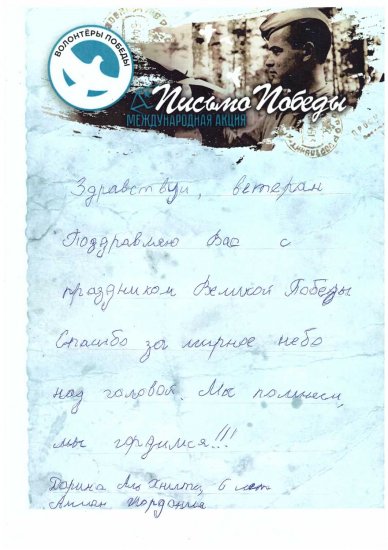 ВОЛОНТЁРЫ ПОБЕДЫ
Письмо Победы
МЕЖДУНАРОДНАЯ АКЦИЯ
Здравствуй, ветеран
Поздравляю Вас с
праздником Великой Победы
Спасибо за мирное небо
над головой. Мы помним,
мы гордимся!!!
Дарина Аль 6 лет
Амман Иордания